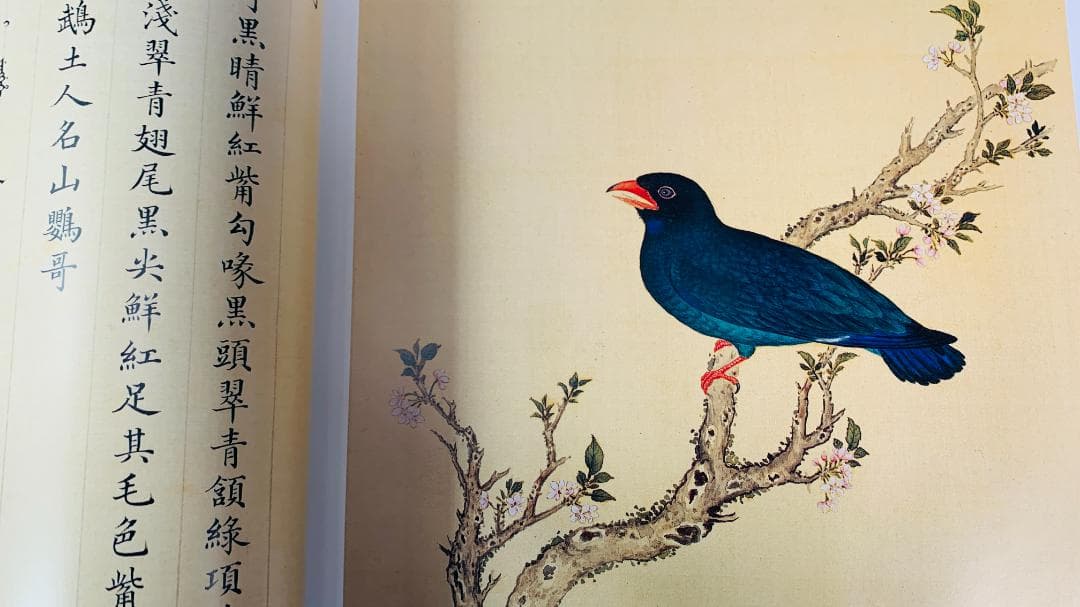 黑睛鮮紅觜勾喙黑頭翠青頷綠項
淺翠青翅尾黑尖鮮紅足其毛色觜
鵡土人名山鸚哥